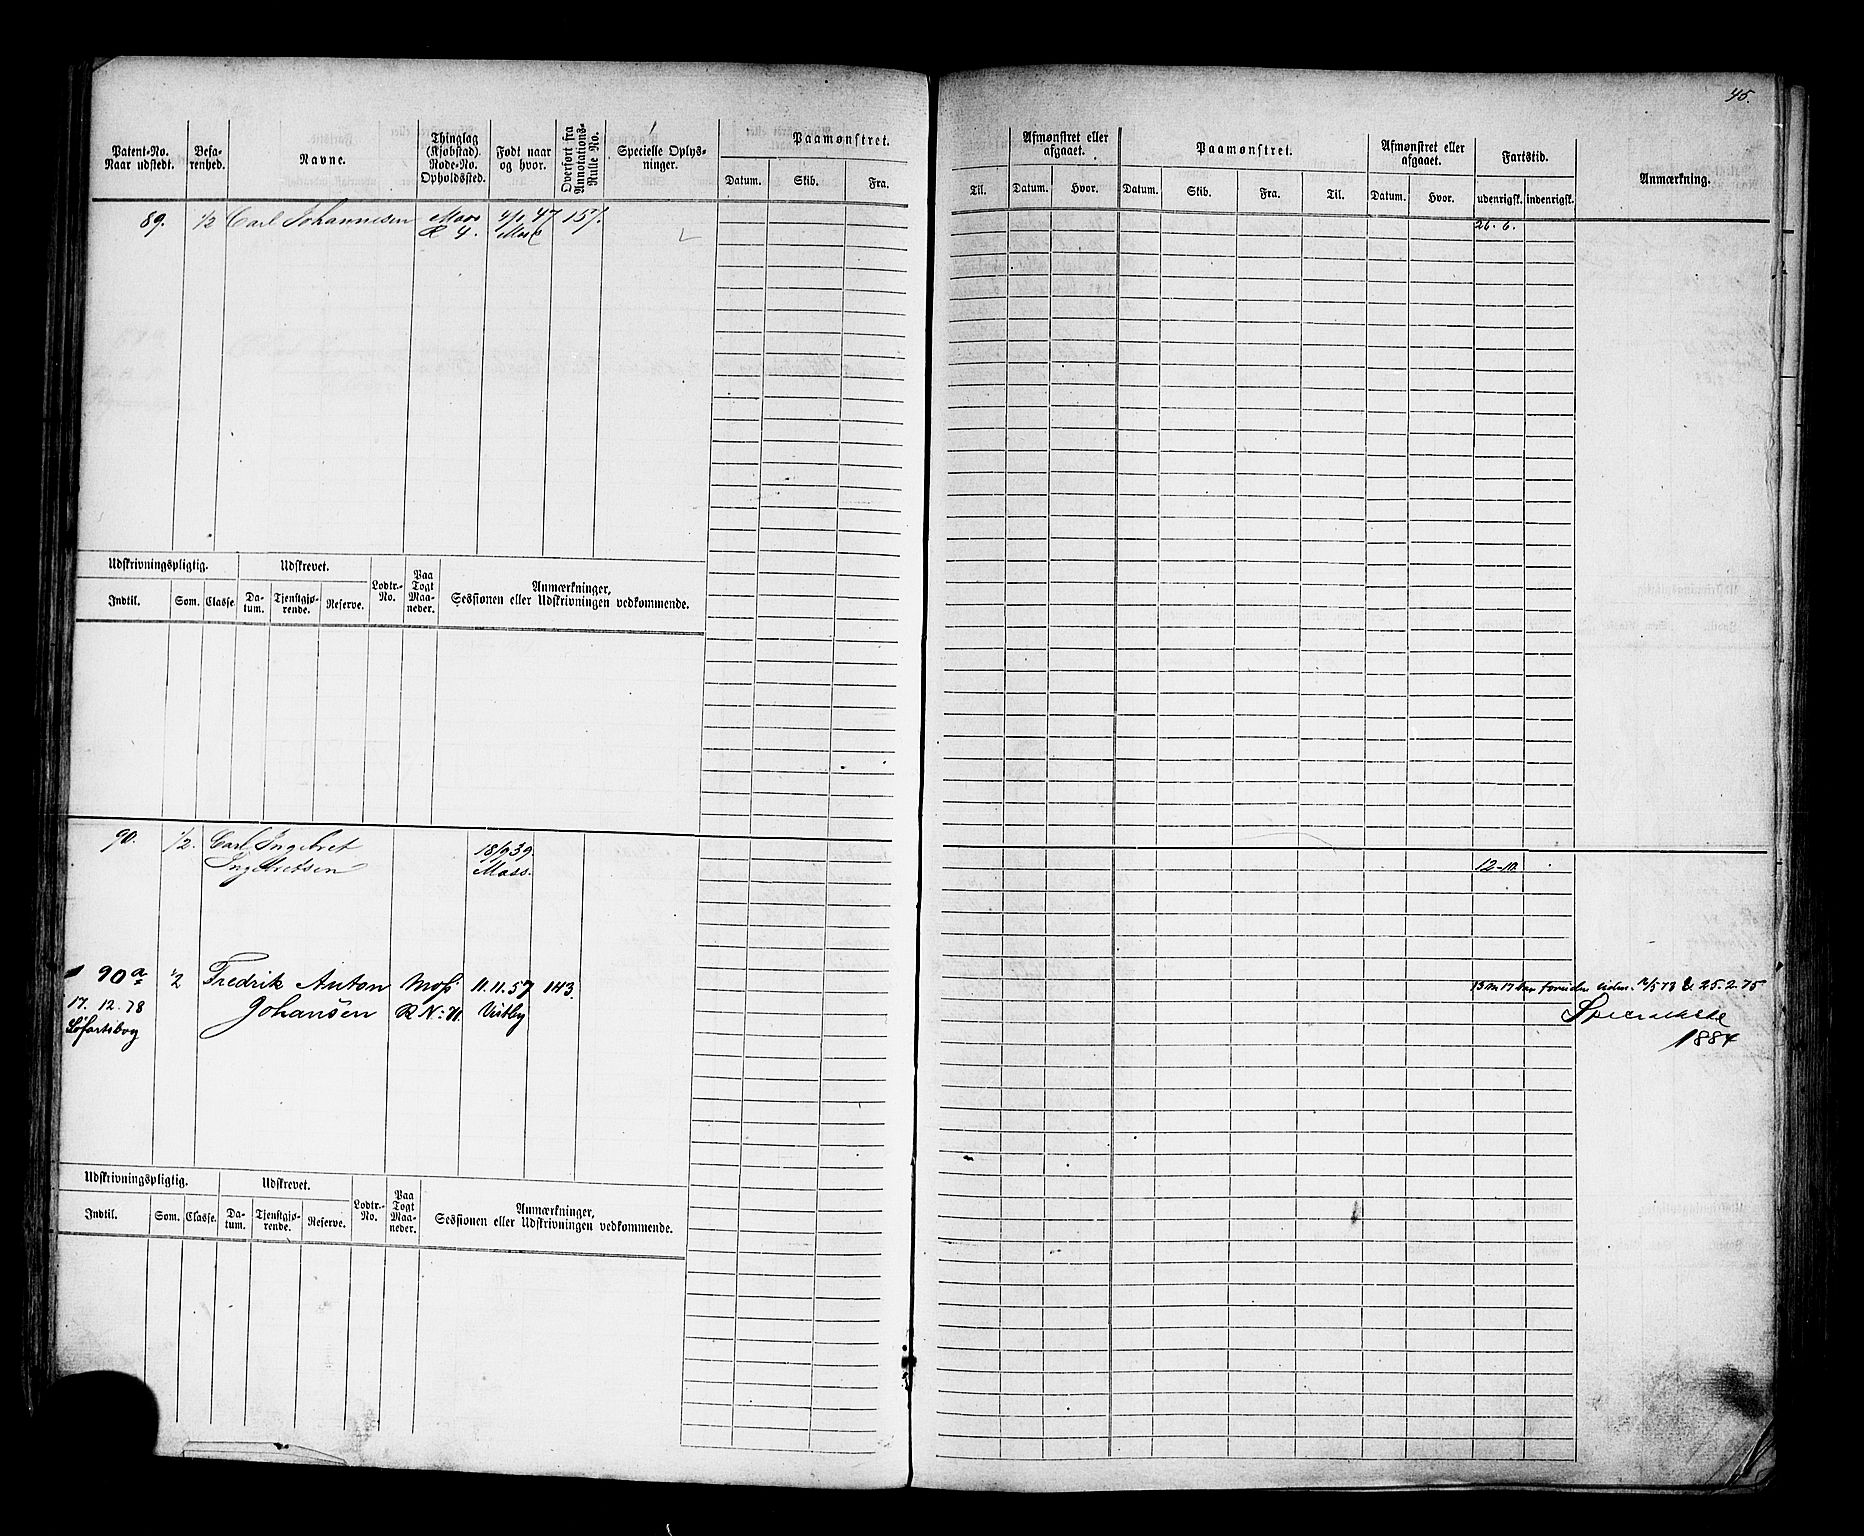 45.
Patent-No. Naar udstedt.
Befarenhed.
Navne.
Thinglag (Kjøbstad) Rode-No. Opholdssted.
Født naar og hvor.
Overført fra Annotations-Rulle No.
Specielle Oplysninger.
Paamønstret.
Datum. Skib. Fra.
Til.
Afmønstret eller afgaaet.
Datum. Hvor.
Paamønstret.
Datum. Skib. Fra. Til.
Afmønstret eller afgaaet.
Datum. Hvor.
Fartstid.
udenrigsk. indenrigsk.
Anmærkning.
89. 1/2 Carl Johannesen Moss 47 157.
R 4. Moss
26. 6.
Udskrivningspligtig. Udskrevet. Lodtr.-No. Paa Togt Maaneder. Anmærkninger, Sessionen eller Udskrivningen vedkommende.
Indtil. Som. Classe. Datum. Tjenstgjørende. Reserve.
90. 1/2. Carl Ingebret 18/9 39.
Ingebretsen Moss.
12-m
90a 1/2 Fredrik Anton Moss 11.11.57 143
17. 12. 78 Johansen R No: 71 Vistby
Søfartsbog
25. 2. 75
1884
Udskrivningspligtig. Udskrevet. Lodtr.-No. Paa Togt Maaneder. Anmærkninger, Sessionen eller Udskrivningen vedkommende.
Indtil. Som. Classe. Datum. Tjenstgjørende. Reserve.